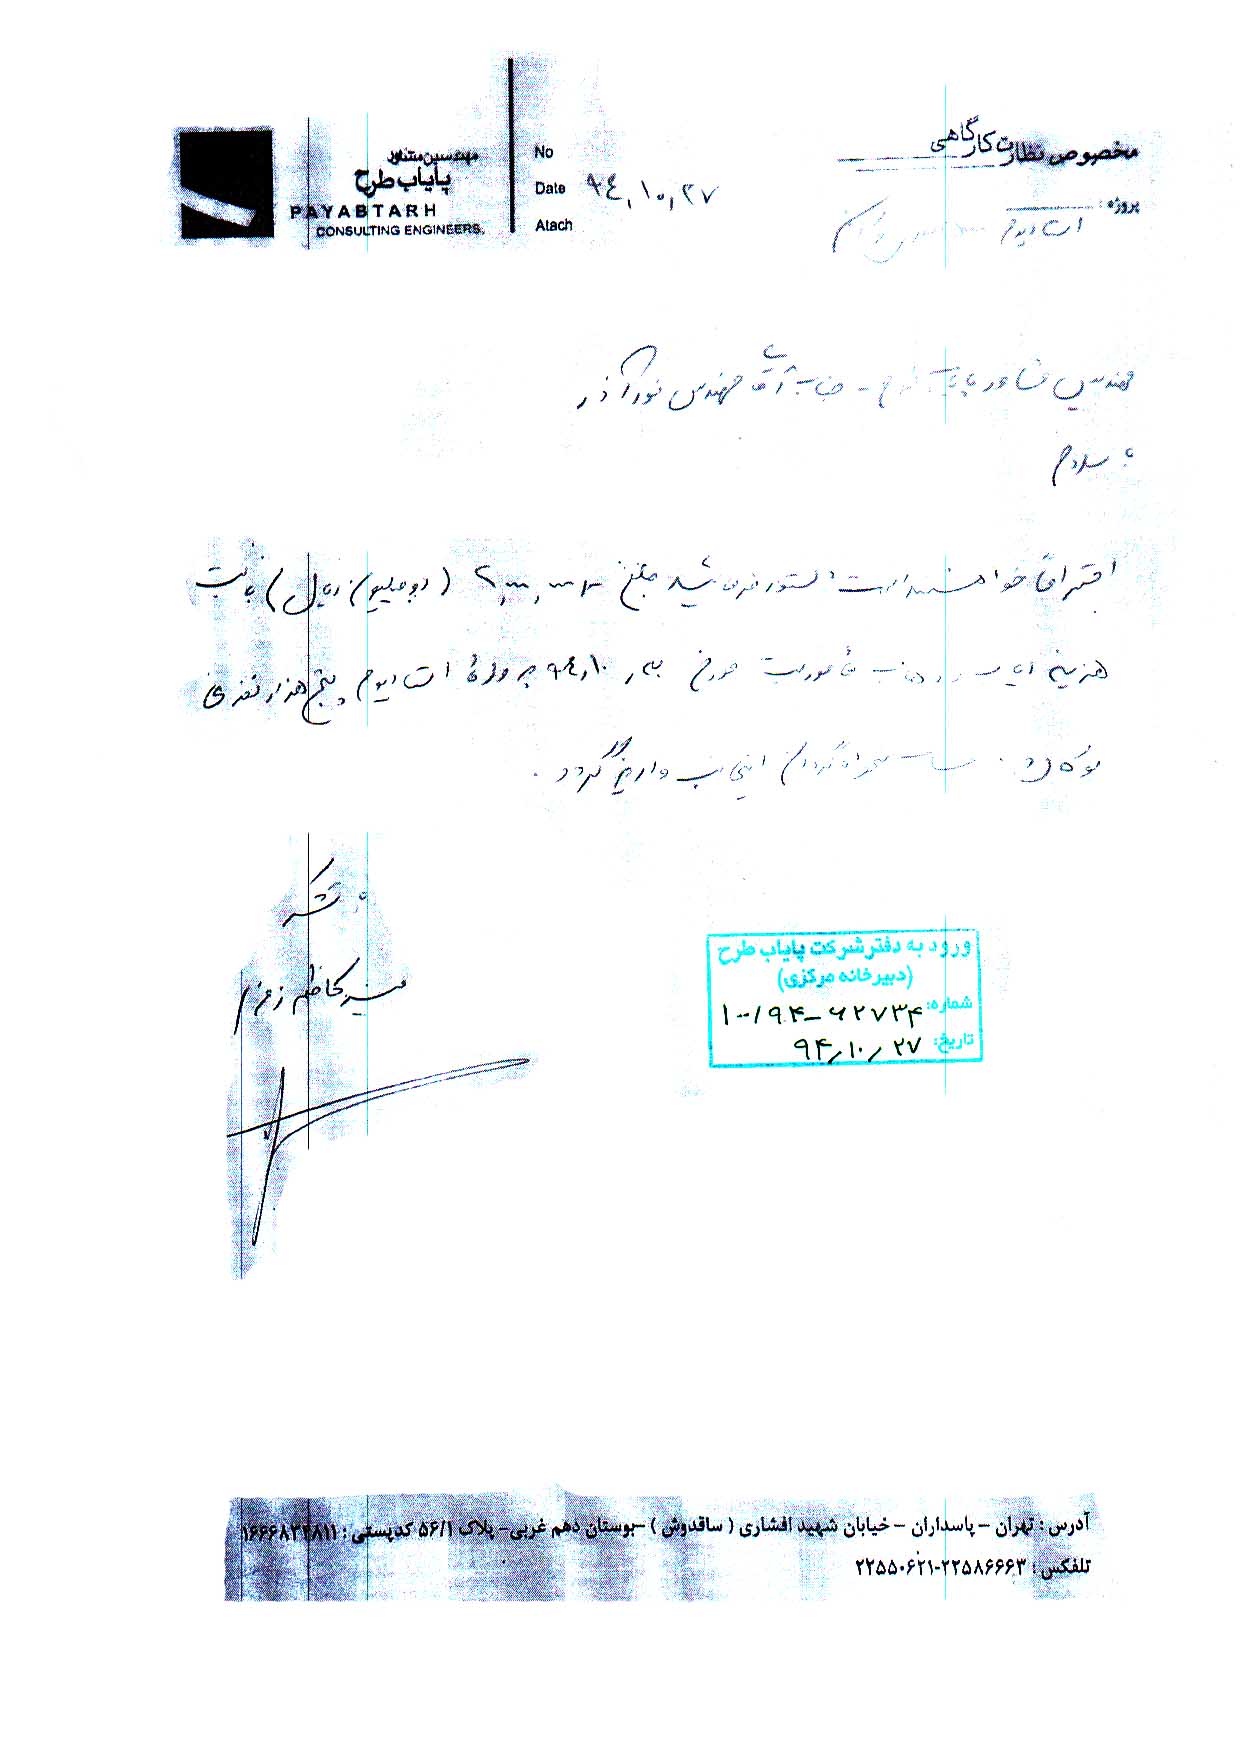 مهندسین مشاور
پایاب طرح
PAYABTARH
CONSULTING ENGINEERS.
No
Date ۹۴,۱۰,۲۷
Atach
مخصوص نظارت کارگاهی
پروژه :
استادیوم
مهندسین مشاور پایاب طرح - جناب آقای مهندس نورآذر
با سلام
احتراماً خواهشمند است دستور فرمائید مبلغ ۲,۰۰۰,۰۰۰ (دو میلیون ریال) بابت
هزینه ایاب و ذهاب مأموریت مورخ ۹۴,۱۰ پروژه استادیوم پنج هزار نفری
اینجانب واریز گردد.
با تشکر
ورود به دفتر شرکت پایاب طرح
(دبیرخانه مرکزی)
شماره: ۱۰۰/۹۴-۶۲۷۳۴
تاریخ: ۹۴,۱۰,۲۷
آدرس : تهران - پاسداران - خیابان شهید افشاری ( ساقدوش ) -بوستان دهم غربی- پلاک ۵۶/۱ کدپستی : ۱۶۶۶۸۳۴۸۱۱
تلفکس : ۲۲۵۸۶۶۶۳-۲۲۵۵۰۶۲۱